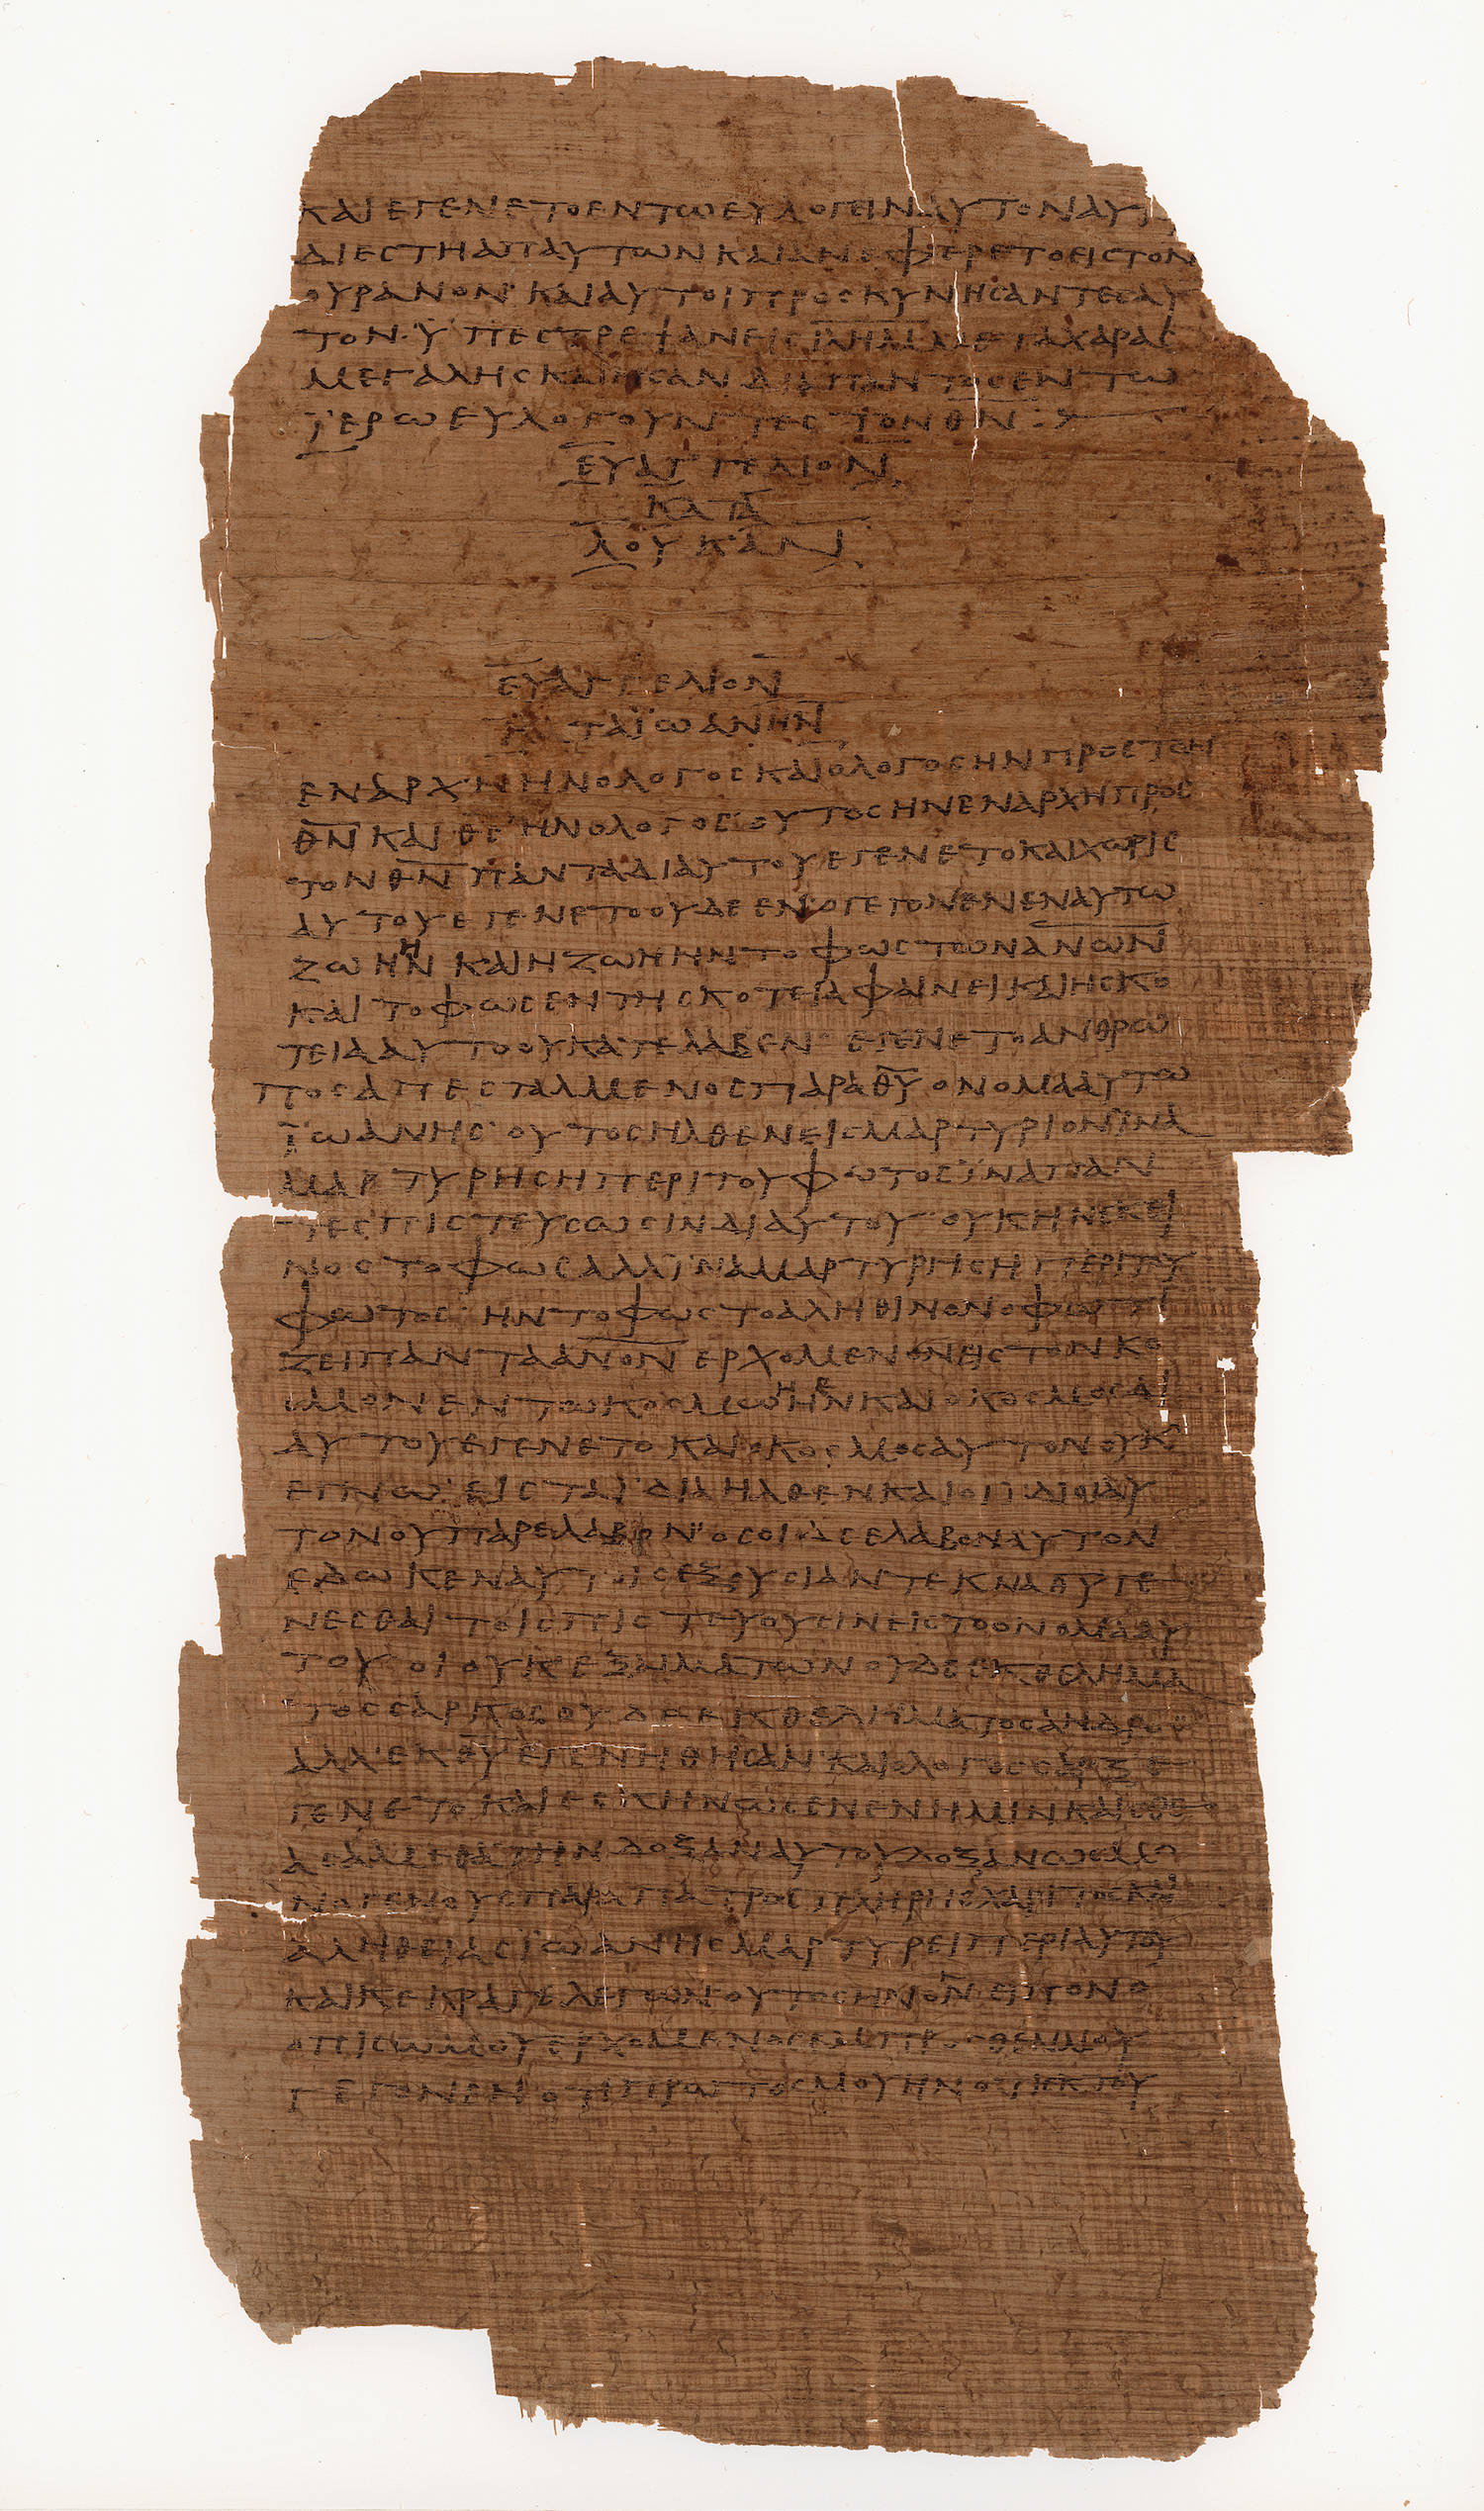 ΚΑΙΕΓΕΝΕΤΟΕΝΤΩΕΥΛΟΓΕΙΝΑΥΤΟΝΑΥ
ΔΙΕΣΤΗΑΠΑΥΤΩΝΚΑΙΑΝΕΦΕΡΕΤΟΕΙΣΤΟΝ
ΟΥΡΑΝΟΝ· ΚΑΙΑΥΤΟΙΠΡΟΣΚΥΝΗΣΑΝΤΕΣΑΥ
ΤΟΝ· ΫΠΕΣΤΡΕΨΑΝΕΙΣΙΛΗΜΜΕΤΑΧΑΡΑΣ
ΜΕΓΑΛΗΣΚΑΙΗΣΑΝΔΙΑΠΑΝΤΟΣΕΝΤΩ
ΪΕΡΩΕΥΛΟΓΟΥΝΤΕΣΤΟΝΘ̅Ν̅:>
ΕΥΑΓΓΕΛΙΟΝ
ΚΑΤΑ
ΛΟΥΚΑΝ
ΕΥΑΓΓΕΛΙΟΝ
ΤΑΪΩΑΝΗΝ
ΕΝΑΡΧΗΗΝΟΛΟΓΟΣΚΑΙΟΛΟΓΟΣΗΝΠΡΟΣΤΟΝ
Θ̅Ν̅ ΚΑΙΘ̅Σ̅ΗΝΟΛΟΓΟΣ· ΟΥΤΟΣΗΝΕΝΑΡΧΗΠΡΟΣ
ΤΟΝΘ̅Ν̅ ΠΑΝΤΑΔΙΑΥΤΟΥΕΓΕΝΕΤΟΚΑΙΧΩΡΙΣ
ΑΥΤΟΥΕΓΕΝΕΤΟΟΥΔΕΕΝ·ΟΓΕΓΟΝΕΝΕΝΑΥΤΩ
ΖΩΗΗΝ ΚΑΙΗΖΩΗΗΝΤΟΦΩΣΤΩΝΑ̅Ν̅Ω̅Ν̅
ΚΑΙΤΟΦΩΣΕΝΤΗΣΚΟΤΕΙΑΦΑΙΝΕΙΚΑΙΗΣΚΟ
ΤΕΙΑΑΥΤΟΟΥΚΑΤΕΛΑΒΕΝ· ΕΓΕΝΕΤΟΑΝΘΡΩ
ΠΟΣΑΠΕΣΤΑΛΜΕΝΟΣΠΑΡΑΘ̅Υ̅ ΟΝΟΜΑΑΥΤΩ
ΪΩΑΝΗΣ· ΟΥΤΟΣΗΛΘΕΝΕΙΣΜΑΡΤΥΡΙΟΝΪΝΑ
ΜΑΡΤΥΡΗΣΗΠΕΡΙΤΟΥΦΩΤΟΣΪΝΑΠΑΝ
ΤΕΣΠΙΣΤΕΥΣΩΣΙΝΔΙΑΥΤΟΥ· ΟΥΚΗΝΕΚΕΙ
ΝΟΣΤΟΦΩΣΑΛΛΪΝΑΜΑΡΤΥΡΗΣΗΠΕΡΙΤΟΥ
ΦΩΤΟΣ· ΗΝΤΟΦΩΣΤΟΑΛΗΘΙΝΟΝΟΦΩΤΙ
ΖΕΙΠΑΝΤΑΑ̅Ν̅Ο̅Ν̅ ΕΡΧΟΜΕΝΟΝΕΙΣΤΟΝΚΟ
ΣΜΟΝΕΝΤΩΚΟΣΜΩΗΝΚΑΙΟΚΟΣΜΟΣΔΙ
ΑΥΤΟΥΕΓΕΝΕΤΟΚΑΙΟΚΟΣΜΟΣΑΥΤΟΝΟΥΚ
ΕΓΝΩ· ΕΙΣΤΑΪΔΙΑΗΛΘΕΝΚΑΙΟΙΪΔΙΟΙΑΥ
ΤΟΝΟΥΠΑΡΕΛΑΒΟΝ· ΟΣΟΙΔΕΕΛΑΒΟΝΑΥΤΟΝ
ΕΔΩΚΕΝΑΥΤΟΙΣΕΞΟΥΣΙΑΝΤΕΚΝΑΘ̅Υ̅ΓΕ
ΝΕΣΘΑΙΤΟΙΣΠΙΣΤΕΥΟΥΣΙΝΕΙΣΤΟΟΝΟΜΑΑΥ
ΤΟΥ ΟΙΟΥΚΕΞΑΙΜΑΤΩΝΟΥΔΕΕΚΘΕΛΗΜΑ
ΤΟΣΣΑΡΚΟΣΟΥΔΕΕΚΘΕΛΗΜΑΤΟΣΑΝΔΡΟΣ
ΑΛΛ᾽ΕΚΘ̅Υ̅ΕΓΕΝΗΘΗΣΑΝ ΚΑΙΟΛΟΓΟΣΣΑΡΞΕ
ΓΕΝΕΤΟΚΑΙΕΣΚΗΝΩΣΕΝΕΝΗΜΙΝΚΑΙΕΘΕ
ΑΣΑΜΕΘΑΤΗΝΔΟΞΑΝΑΥΤΟΥΔΟΞΑΝΩΣΜΟ
ΝΟΓΕΝΟΥΣΠΑΡΑΠΑΤΡΟΣΠΛΗΡΗΣΧΑΡΙΤΟΣΚΑΙ
ΑΛΗΘΕΙΑΣΪΩΑΝΗΣΜΑΡΤΥΡΕΙΠΕΡΙΑΥΤΟΥ
ΚΑΙΚΕΚΡΑΓΕΛΕΓΩΝΟΥΤΟΣΗΝΟΝΕΙΠΟΝΟ
ΟΠΙΣΩΜΟΥΕΡΧΟΜΕΝΟΣΕΜΠΡΟΣΘΕΝΜΟΥ
ΓΕΓΟΝΕΝΟΤΙΠΡΩΤΟΣΜΟΥΗΝΟΤΙΕΚΤΟΥ